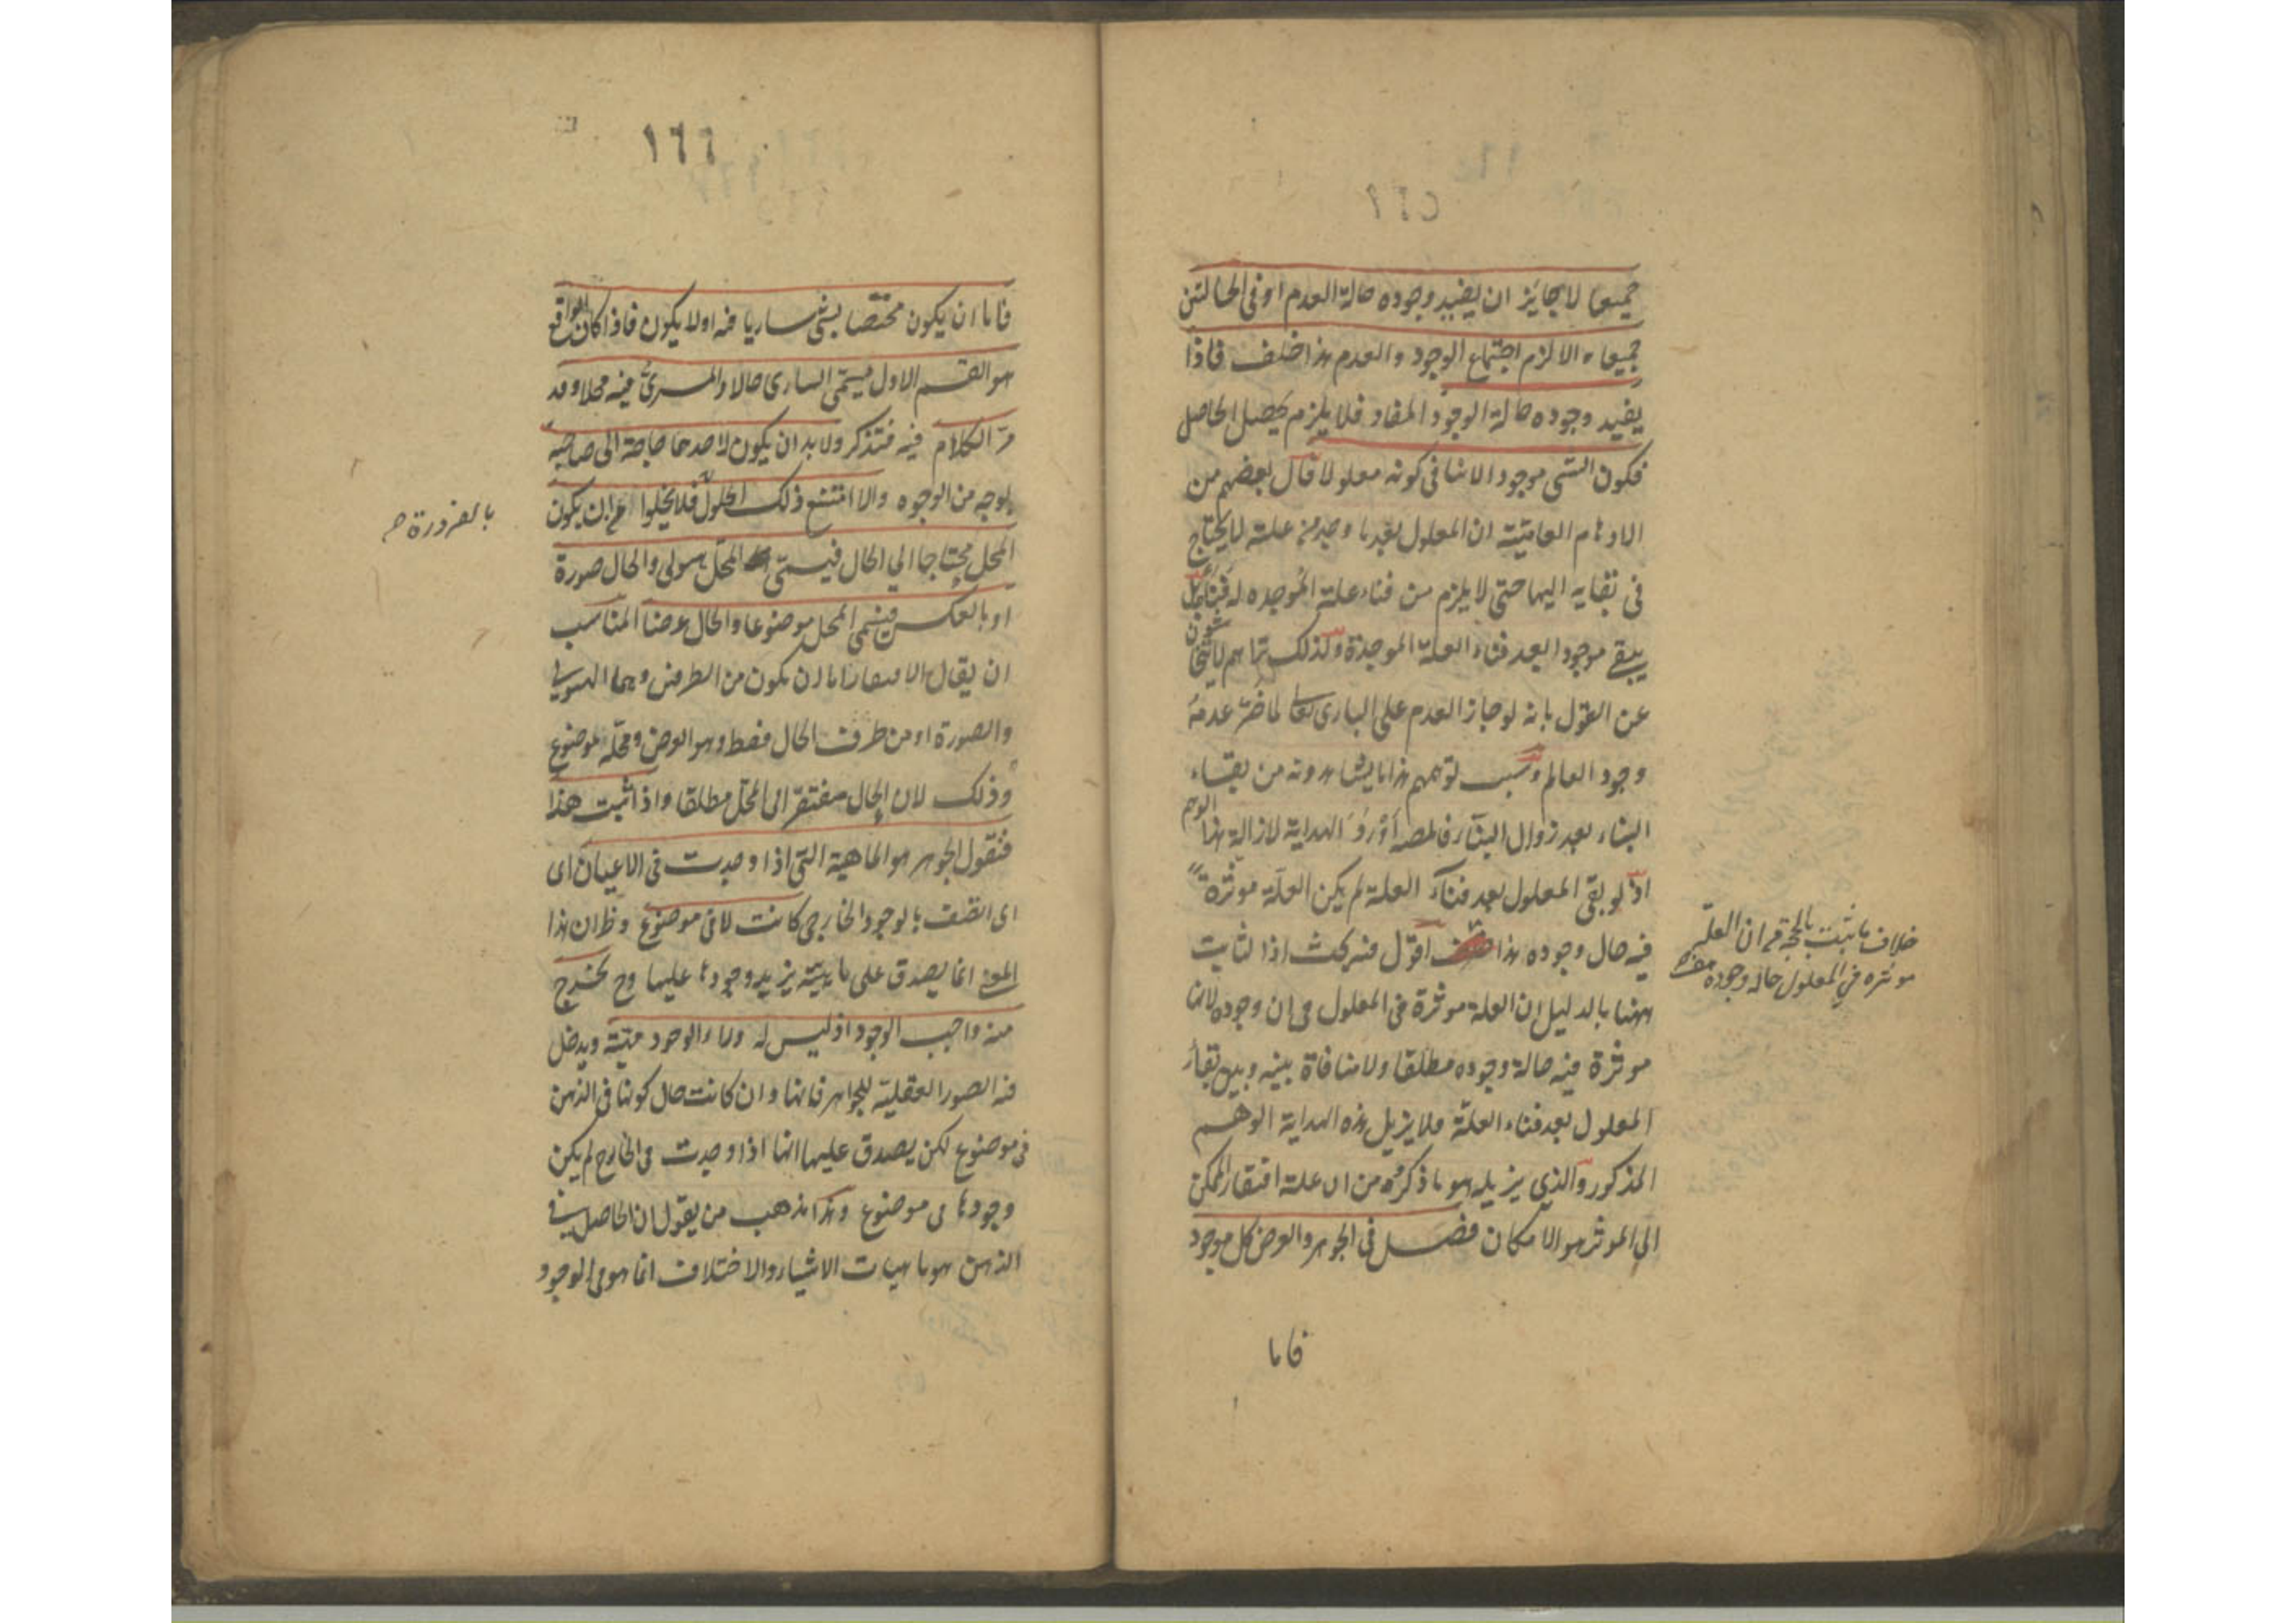 ١٦٥
جميعا لا جايز ان يفيد وجوده حالة العدم او فى الحالتين
جميعا والا لزم اجتماع الوجود والعدم هذا خلف فاذا
يفيد وجوده حالة الوجود المفاد فلا يلزم تحصيل الحاصل
فكون الشى موجودا لا ينافى كونه معلولا قال بعضهم من
الاوهام العامية ان المعلول بعد ما وجد من علته لا يحتاج
فى بقايه اليها حتى لا يلزم من فناء علته الموجده له
يبقى موجودا بعد فناء العلة الموجدة ولذلك تراهم لا يتحاشون
عن القول بانه لو جاز العدم على البارى تعالى لما ضر عدمه
وجود العالم وسبب توهمهم هذا ما يشاهدونه من بقاء
البناء بعد زوال البناء فالمصـ اورد الهداية لازالة هذا الوهم
اذ لو بقى المعلول بعد فناء العلة لم يكن العلة موثرة
فيه حال وجوده هذا خلف اقول فيه بحث اذا لثابت
ههنا بالدليل ان العلة موثرة فى المعلول فى ان وجوده لا انها
موثرة فيه حالة وجوده مطلقا ولا منافاة بينه وبين بقاء
المعلول بعد فناء العلة فلا يزيل هذه الهداية الوهم
المذكور والذي يزيله هو ما ذكره من ان علة افتقار الممكن
الى الموثر هو الامكان فصل فى الجوهر والعرض كل موجود
فاما
خلاف ما ثبت بالحجة من ان العلة
موثره في المعلول حال وجوده
١٦٦
فاما ان يكون مختصا بشى ساريا فيه او لا يكون فاذا كان الواقع
هو القسم الاول يسمى السارى حالا والمسرى فيه محلا وقد
مر الكلام فيه فتذكر ولا بد ان يكون لاحدهما حاجة الى صاحبه
بوجه من الوجوه والا امتنع ذلك الحلول فلا يخلوا اما ان يكون
بالضرورة
المحل محتاجا الي الحال فيسمى المحل هيولى والحال صورة
او بالعكس فيسمى المحل موضوعا والحال عرضا المناسب
ان يقال الافتقار اما ان يكون من الطرفين وهما الهيولى
والصورة او من طرف الحال فقط وهو العرض ومحله الموضوع
وذلك لان الحال مفتقر الى المحل مطلقا واذا ثبت هذا
فنقول الجوهر هو الماهية التى اذا وجدت فى الاعيان اى
اى اتصف بالوجود الخارجى كانت لا فى موضوع وظ ان هذا
المعنى انما يصدق على ماهيته يزيد وجودها عليها وح تخرج
منه واجب الوجود اذ ليس له وراء الوجود مهية ويدخل
فيه الصور العقلية للجواهر فانها وان كانت حال كونها فى الذهن
فى موضوع لكن يصدق عليها انها اذا وجدت فى الخارج لم يكن
وجودها فى موضوع وهذا مذهب من يقول ان الحاصل فى
الذهن هو ماهيات الاشياء والاختلاف انما هو فى الوجود